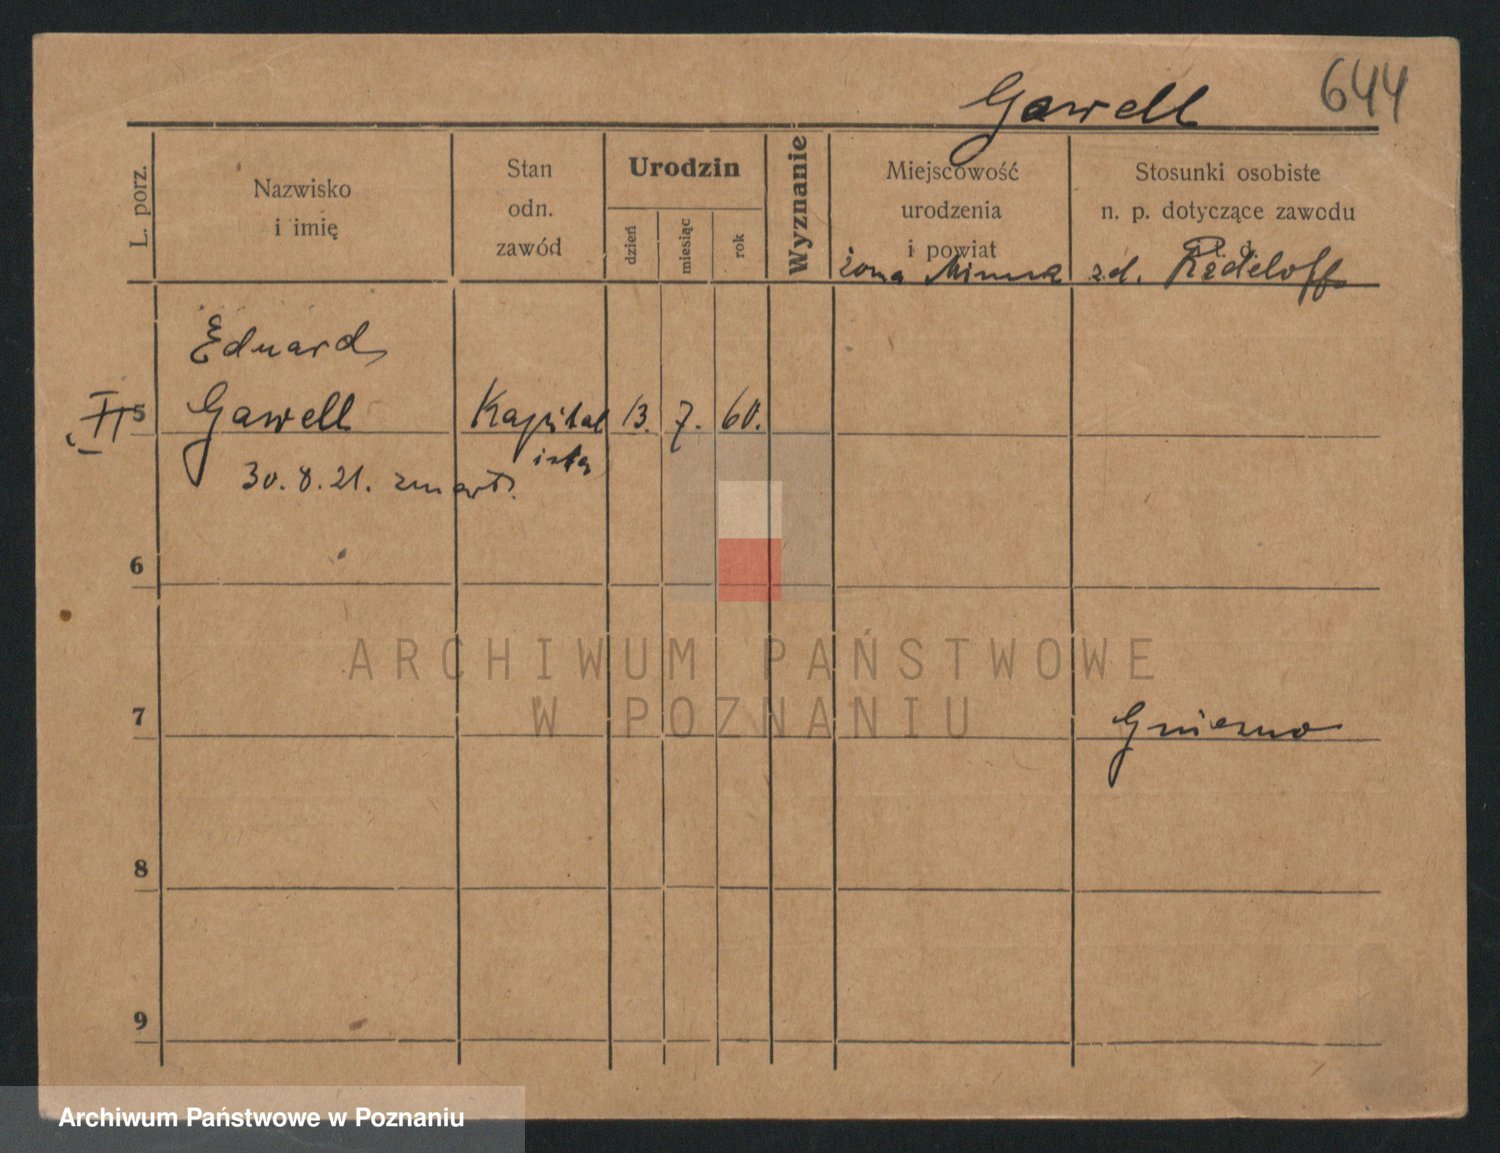 644
Gawell
L. porz.
Nazwisko
i imię
Stan
odn.
zawód
Urodzin
dzień
miesiąc
rok
Wyznanie
Miejscowość
urodzenia
i powiat
Stosunki osobiste
n. p. dotyczące zawodu
i t. d.
żona zd.
Eduard
II 5 Gawell Kapital 13. 7. 60.
ista
30. 8. 21. zmarł.
6
7 Gniezno
8
9
ARCHIWUM PAŃSTWOWE
W POZNANIU
Archiwum Państwowe w Poznaniu